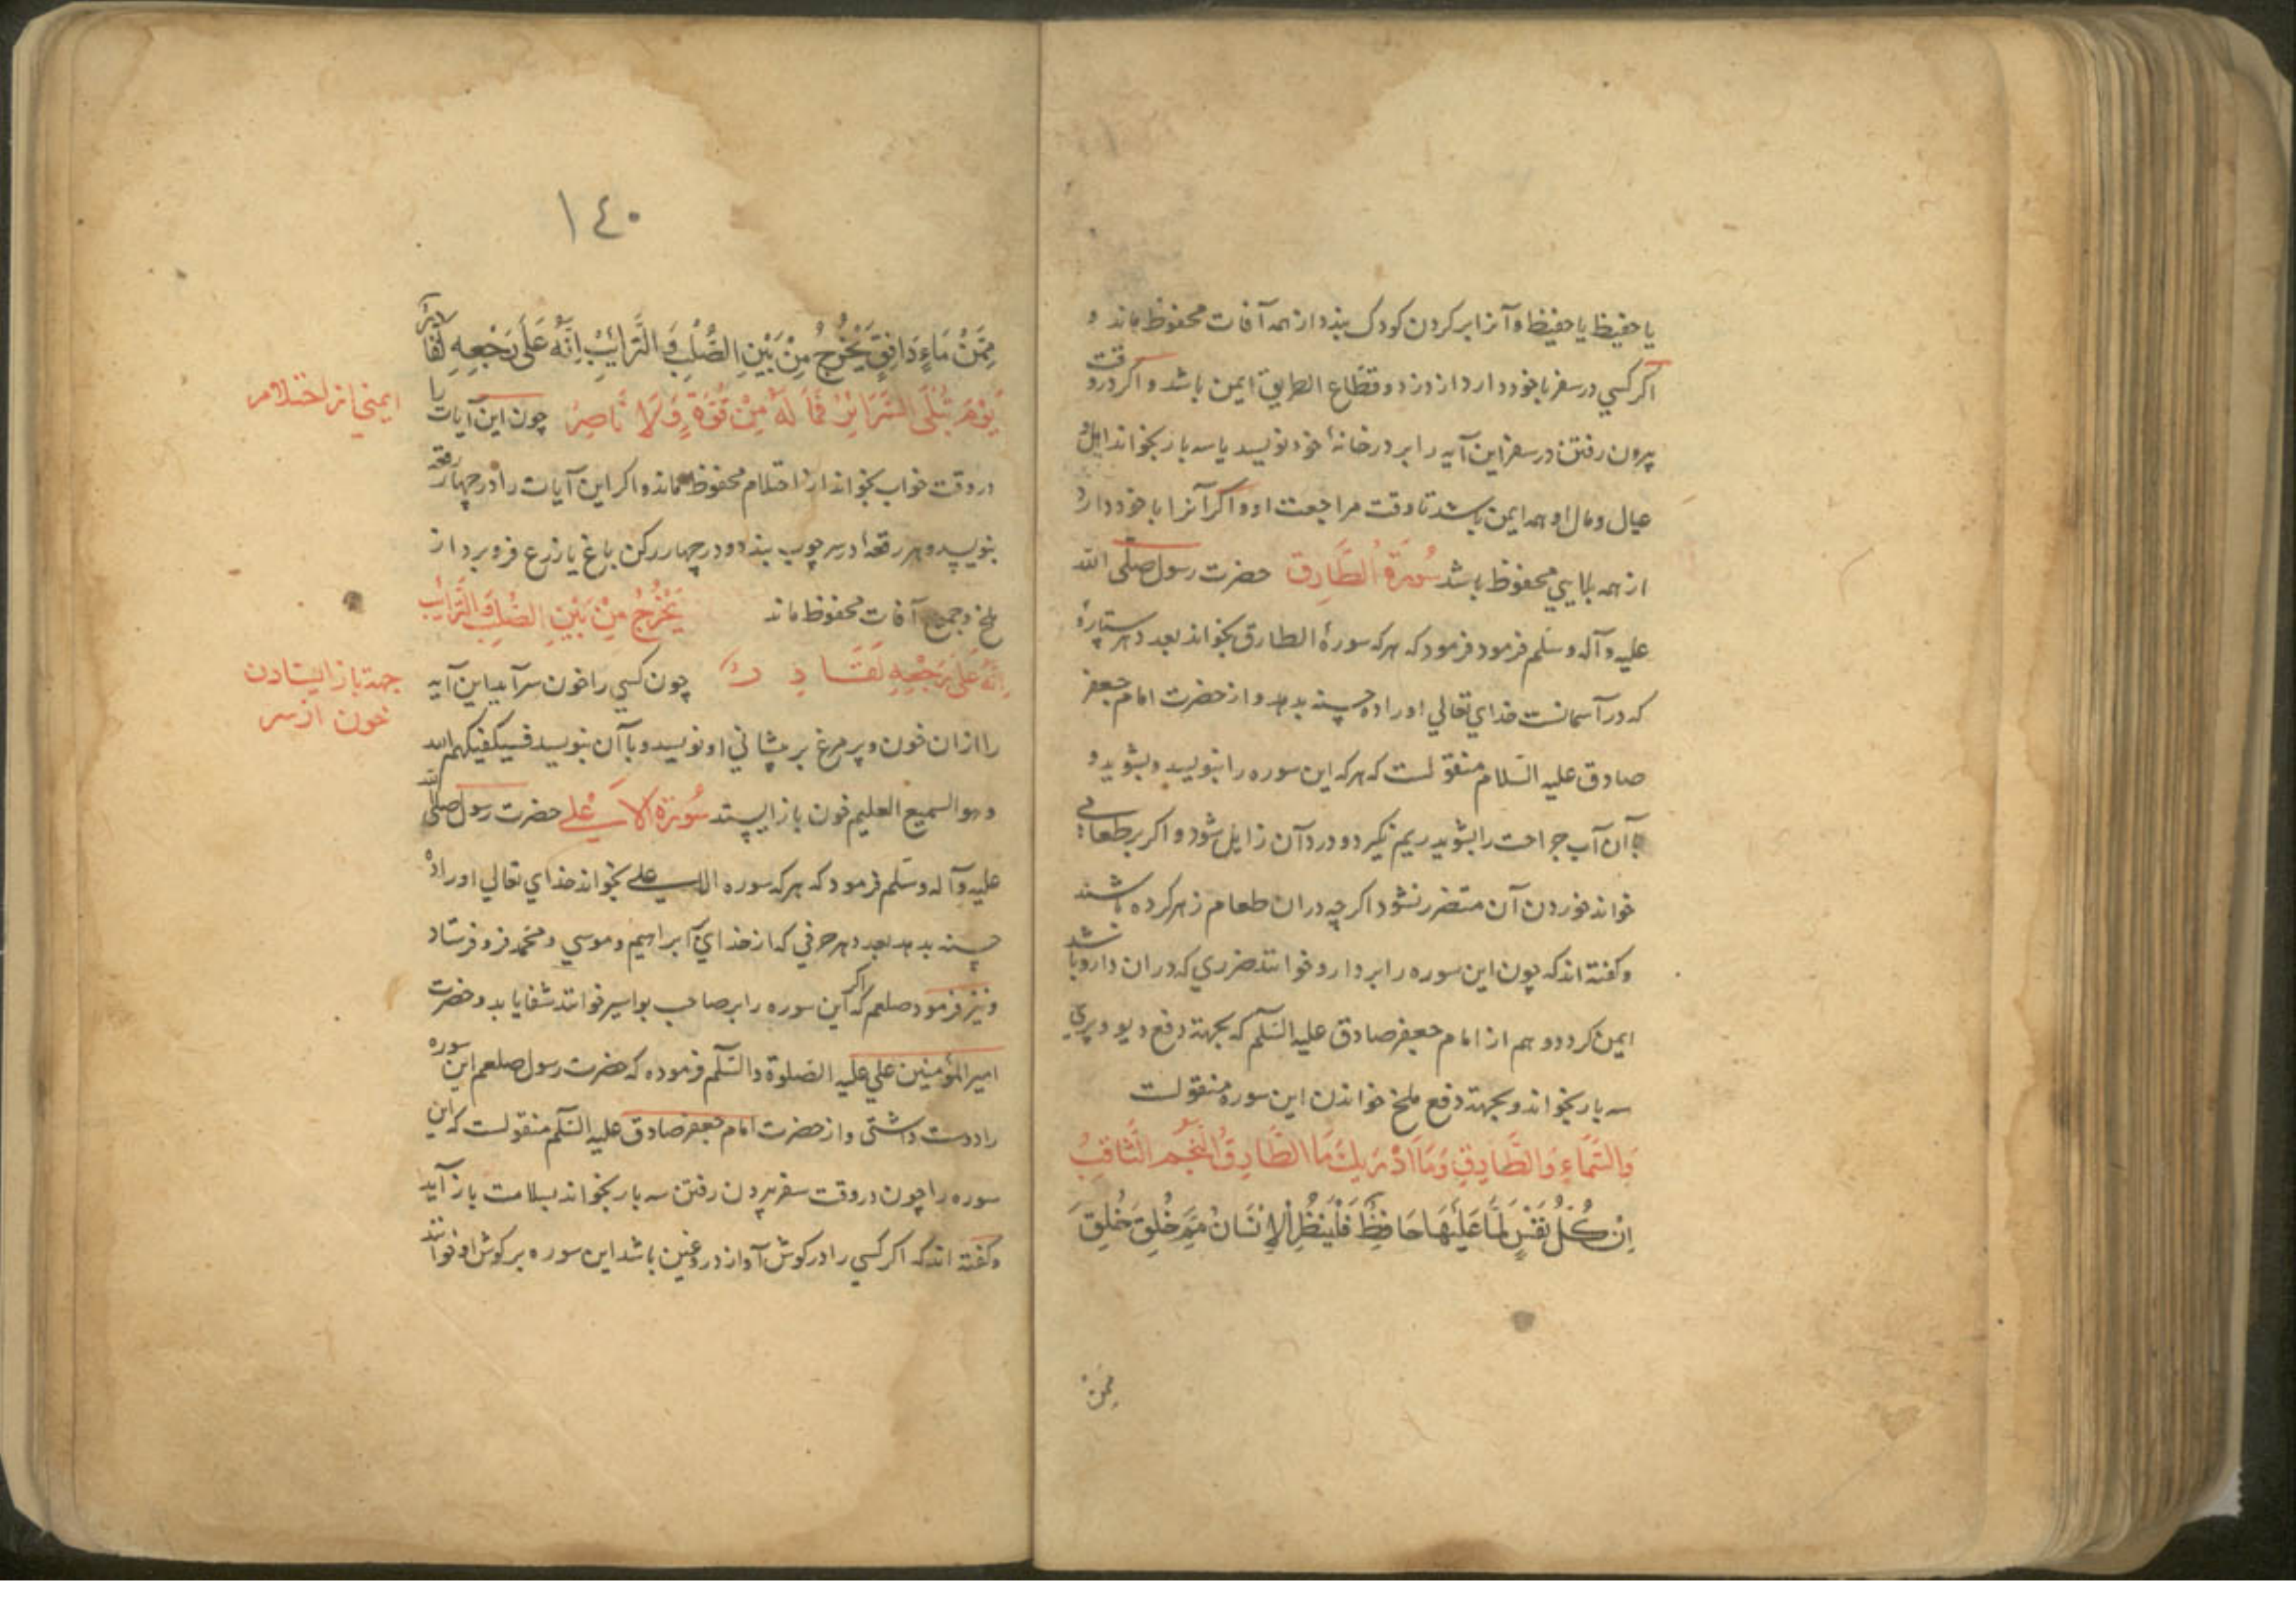 یا حفیظ یا حفیظ و آنرا بر کردن کودک بندد از همه آفات محفوظ ماند و
اکر کسي در سفر با خود دارد از دزد و قطّاع الطریق ایمن باشد و اکر در وقت
بیرون رفتن در سفر این آیه را بر در خانهٔ خود نویسد یا سه بار بخواند اهل و
عیال و مال او همه ایمن باشد تا وقت مراجعت او و اکر آنرا با خود دارد
از همه بلایي محفوظ باشد سُورَةُ الطَّارِق حضرت رسول صلّی الله
علیه و آله وسلّم فرمود فرمود که هر که سورهٔ الطارق بخواند بعدد هر ستارهٔ
که در آسمانست خداي تعالي او را ده حسنه بدهد و از حضرت امام جعفر
صادق علیه السّلام منقولست که هر که این سوره را بنویسد و بشوید و
بآن آب جراحت را بشوید ریم نکیرد و درد آن زایل شود و اکر بر طعامي
خواند خوردن آن متضرر نشود اکر چه در ان طعام زهر کرده باشند
و کفته اند که چون این سوره را بر دارو خوانند ضرري که در ان دارو باشد
ایمن کردد و هم از امام جعفر صادق علیه السّلم که بجهة دفع دیو و پري
سه بار بخواند و بجهة دفع ملخ خواندن این سوره منقولست
وَالسَّمَاءِ وَالطَّارِقِ وَمَا اَدْرٰیكَ مَا الطَّارِقُ النَّجْمُ الثَّاقِبُ
اِنْ كُلُّ نَفْسٍ لَمَّا عَلَيْهَا حَافِظٌ فَلْيَنْظُرِ الْاِنْسَانُ مِمَّ خُلِقَ خُلِقَ
مِمَّنْ
١٤٠
مِمَّنْ مَاءٍ دَافِقٍ يَخْرُجُ مِنْ بَيْنِ الصُّلْبِ وَالتَّرَائِبِ اِنَّهُ عَلَى رَجْعِهِ لَقَادِرٌ
يَوْمَ تُبْلَى السَّرَائِرُ فَمَا لَهُ مِنْ قُوَّةٍ وَلَا نَاصِرٍ چون این آیات را
ایمني از احتلام
در وقت خواب بخواند از احتلام محفوظ ماند و اکر این آیات را در چهار رقعه
بنویسد و هر رقعه را در سر چوب بندد و در چهار رکن باغ یا زرع فرو برد از
ملخ و جمیع آفات محفوظ ماند يَخْرُجُ مِنْ بَيْنِ الصُّلْبِ وَالتَّرَائِبِ
اِنَّهُ عَلَى رَجْعِهِ لَقَادِرٌ چون کسي را خون سر آید این آیه
جهة باز ایستادن
خون از سر
را از ان خون و پر مرغ بر پیشاني او نویسد و با آن بنویسد فسیکفیکهم الله
و هو السمیع العلیم خون باز ایستد سُورَةُ الاَعْلی حضرت رسول صلی الله
علیه و آله وسلّم فرمود که هر که سوره الاعلی بخواند خداي تعالي او را ده
حسنه بدهد بعدد هر حرفي که از خداي با ابراهیم و موسي و محمد فرو فرستاد
و نیز فرمود صلعم که اکر این سوره را بر صاحب بواسیر خوانند شفا یابد و حضرت
امیر المؤمنین علي علیه الصلوة والسّلم فرموده که حضرت رسول صلعم این سوره
را دوست داشتی و از حضرت امام جعفر صادق علیه السّلم منقولست که این
سوره را چون در وقت سفر بیرون رفتن سه بار بخواند بسلامت باز آید
و کفته اند که اکر کسي را در کوش آواز دروغین باشد این سوره بر کوش او خوانند